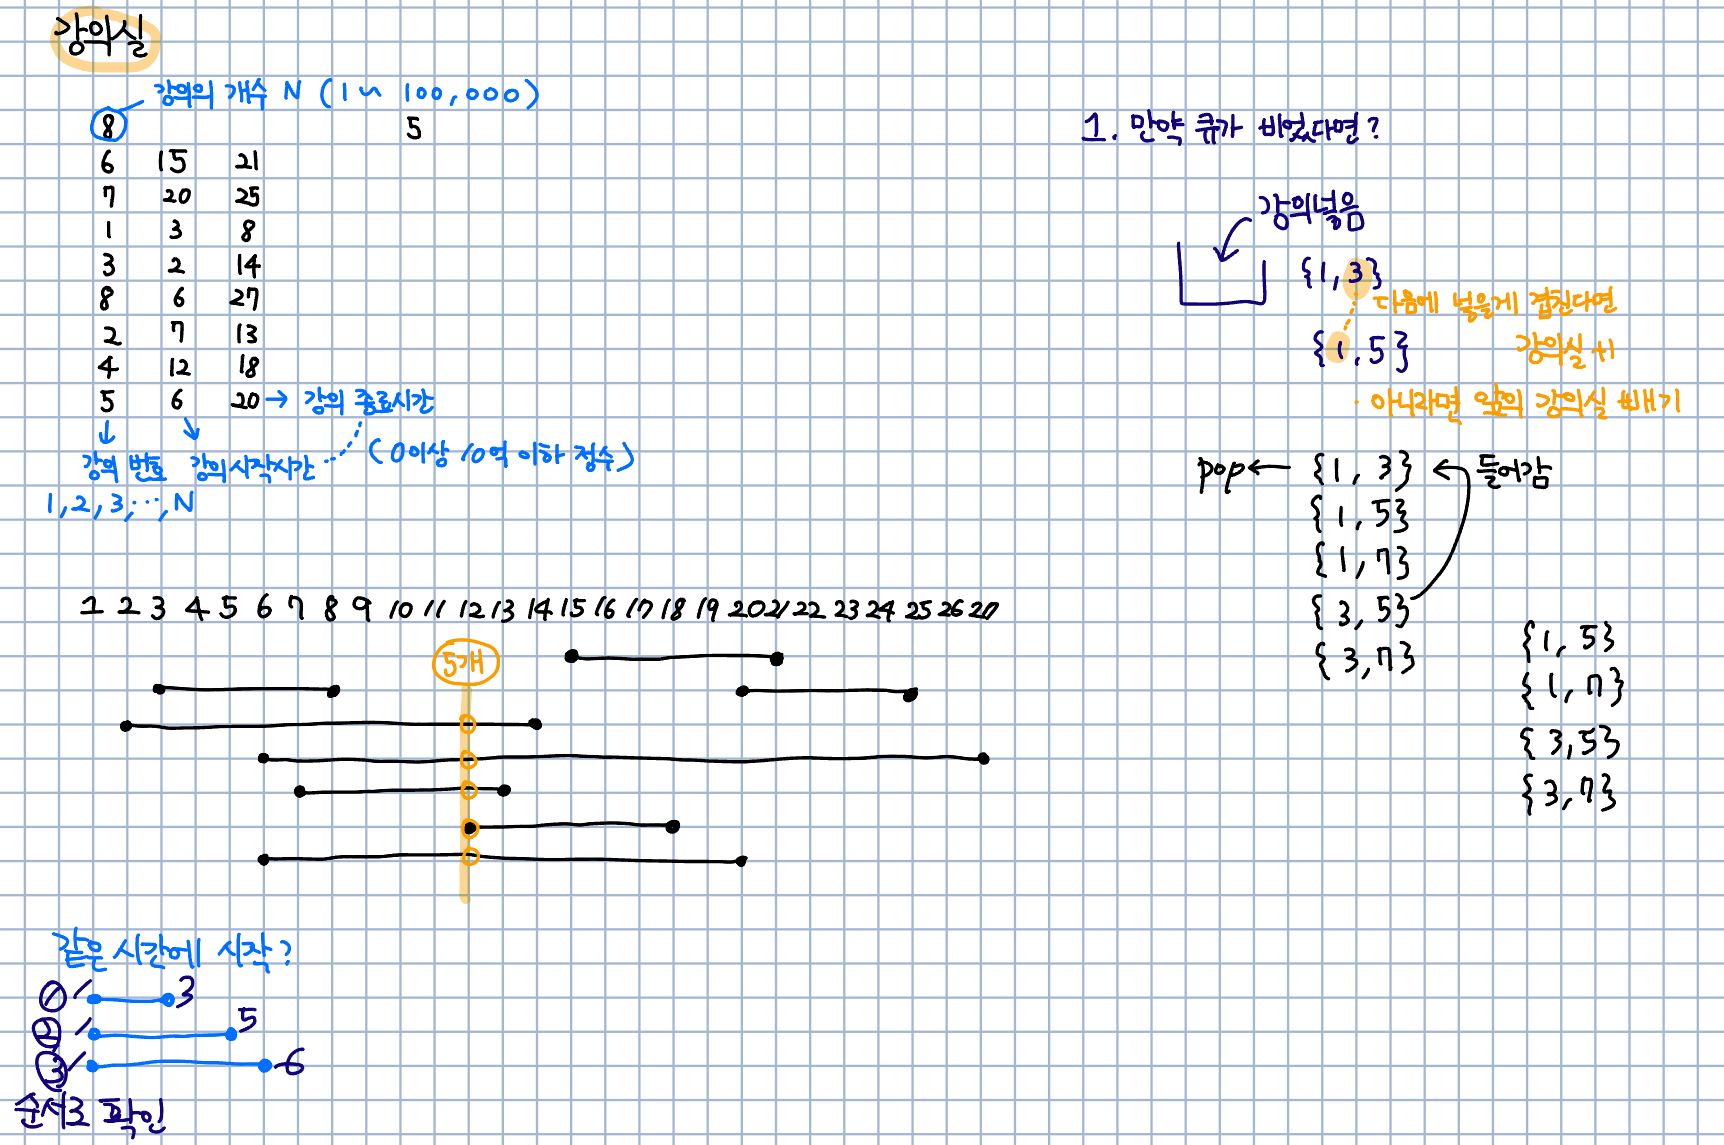 강의실
강의의 개수 N (1 ~ 100,000)
8 5
6 15 21
7 20 25
1 3 8
3 2 14
8 6 27
2 7 13
4 12 18
5 6 20 → 강의 종료시간
강의 번호 강의시작시간 (0이상 10억 이하 정수)
1, 2, 3, ..., N
1 2 3 4 5 6 7 8 9 10 11 12 13 14 15 16 17 18 19 20 21 22 23 24 25 26 27
5개
같은 시간에 시작?
① 1 3
② 1 5
③ 1 6
순서로 확인
1. 만약 큐가 비었다면?
강의넣음
{1, 3}
다음에 넣을게 겹친다면
{1, 5} 강의실 +1
· 아니라면 앞의 강의실 빼기
pop ← {1, 3} ← 들어감
{1, 5}
{1, 7}
{3, 5}
{3, 7}
{1, 5}
{1, 7}
{3, 5}
{3, 7}